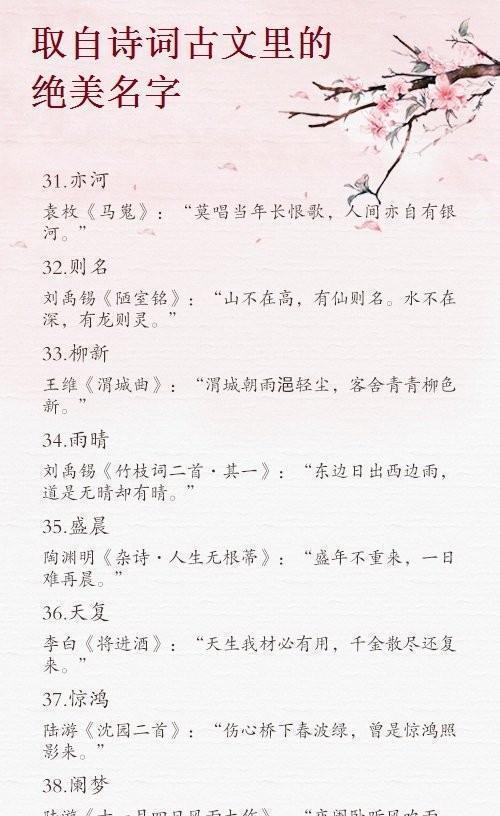 取自诗词古文里的
绝美名字
31.亦河
袁枚《马嵬》：“莫唱当年长恨歌，人间亦自有银
河。”
32.则名
刘禹锡《陋室铭》：“山不在高，有仙则名。水不在
深，有龙则灵。”
33.柳新
王维《渭城曲》：“渭城朝雨浥轻尘，客舍青青柳色
新。”
34.雨晴
刘禹锡《竹枝词二首·其一》：“东边日出西边雨，
道是无晴却有晴。”
35.盛晨
陶渊明《杂诗·人生无根蒂》：“盛年不重来，一日
难再晨。”
36.天复
李白《将进酒》：“天生我材必有用，千金散尽还复
来。”
37.惊鸿
陆游《沈园二首》：“伤心桥下春波绿，曾是惊鸿照
影来。”
38.阑梦
陆游《十一月四日风雨大作》：“夜阑卧听风吹雨，